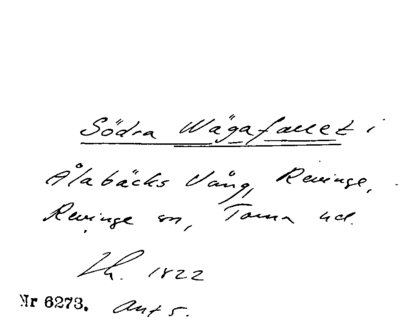 Södra Wägafallet i
Ålabäcks Vång, Revinge,
Revinge sn, Torna hd.
1822
Nr 6273. Ant 5.